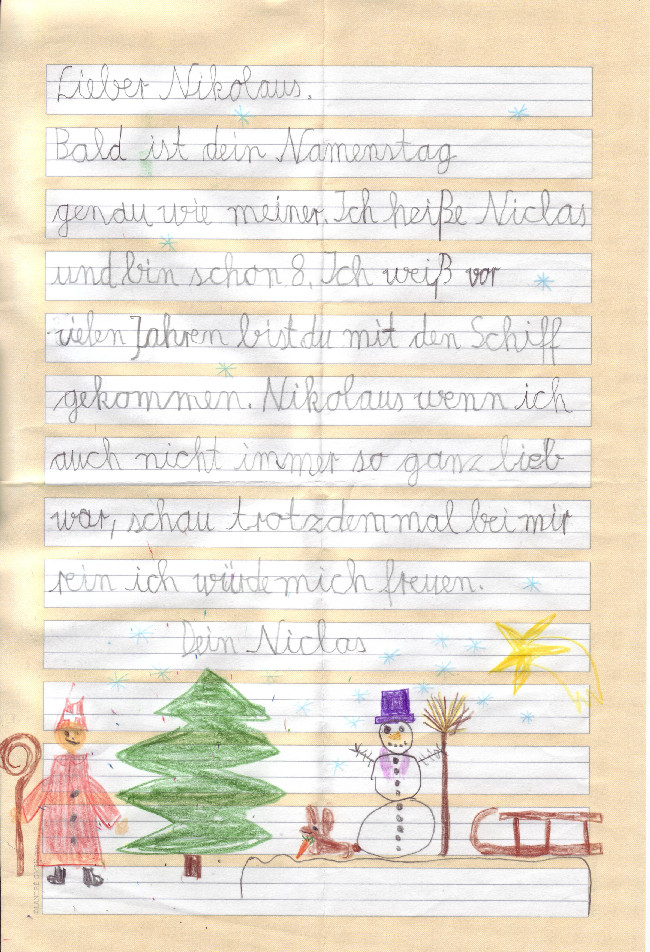 Lieber Nikolaus.
Bald ist dein Namenstag
genau wie meiner. Ich heiße Niclas
und bin schon 8. Ich weiß vor
vielen Jahren bist du mit den Schiff
gekommen. Nikolaus wenn ich
auch nicht immer so ganz lieb
war, schau trotzdem mal bei mir
rein ich würde mich freuen.
Dein Niclas